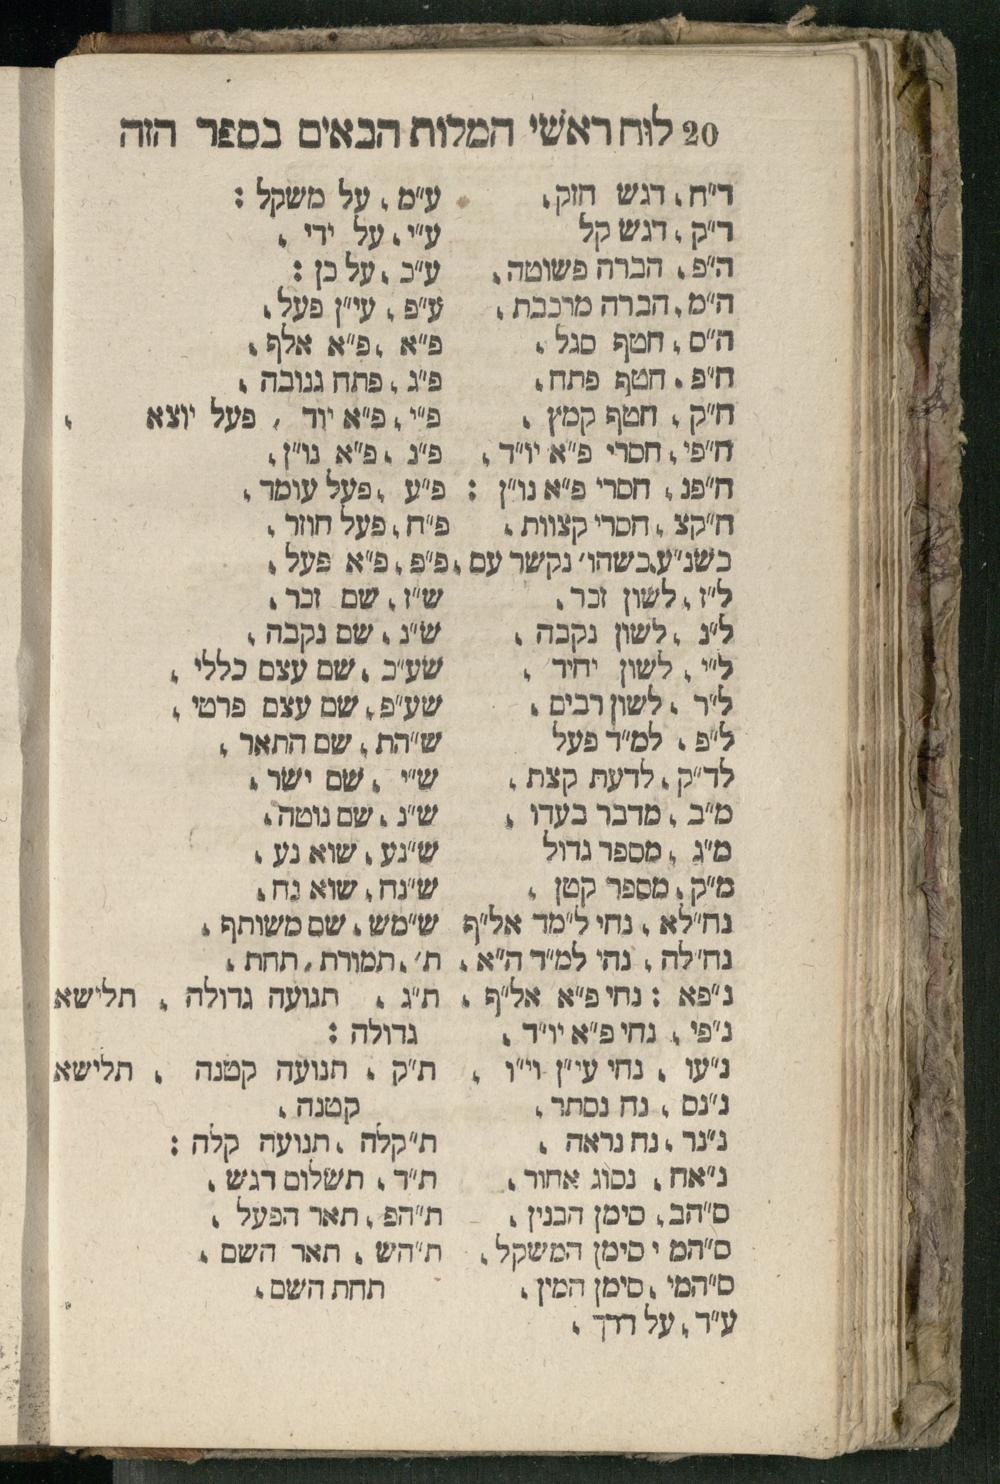 20 לוח ראשי המלות הבאים בספר הזה
ד״ח, דגש חזק,
ד״ק, דגש קל
ה״פ, הברה פשוטה,
ה״מ, הברה מרכבת,
ה״ס, חטף סגל,
ח״פ, חטף פתח,
ח״ק, חטף קמץ,
ח״פי, חסרי פ״א יו״ד,
ח״פנ, חסרי פ״א נו״ן :
ח״קצ, חסרי קצוות,
כשנ״ע, כשהו׳ נקשר עם,
ל״ז, לשון זכר,
ל״נ, לשון נקבה,
ל״י, לשון יחיד,
ל״ר, לשון רבים,
ל״פ, למ״ד פעל
לד״ק, לדעת קצת,
מ״ב, מדבר בעדו,
מ״ג, מספר גדול
מ״ק, מספר קטן,
נח״לא, נחי ל״מד אל״ף
נח״לה, נהי למ״ד ה״א,
נ״פא : נחי פ״א אל״ף,
נ״פי, נחי פ״א יו״ד,
נ״עו, נחי עי״ן וי״ו,
נ״נס, נח נסתר,
נ״נר, נח נראה,
נ״אח, נסוג אחור,
ס״הב, סימן הבנין,
ס״המ י סימן המשקל,
ס״המי, סימן המין,
ע״ד, על דרך,
ע״מ, על משקל :
ע״י, על ידי,
ע״כ, על כן :
ע״פ, עי״ן פעל,
פ״א, פ״א אלף,
פ״ג, פתח גנובה,
פ״י, פ״א יוד, פעל יוצא,
פ״נ, פ״א נו״ן,
פ״ע, פעל עומד,
פ״ח, פעל חוזר,
פ״פ, פ״א פעל,
ש״ז, שם זכר,
ש״נ, שם נקבה,
שע״כ, שם עצם כללי,
שע״פ, שם עצם פרטי,
ש״הת, שם התאר,
ש״י, שם ישר,
ש״נ, שם נוטה,
ש״נע, שוא נע,
ש״נח, שוא נח,
ש״מש, שם משותף,
ת׳, תמורת, תחת,
ת״ג, תנועה גדולה, תלישא
גדולה :
ת״ק, תנועה קטנה, תלישא
קטנה,
ת״קלה, תנועה קלה :
ת״ד, תשלום דגש,
ת״הפ, תאר הפעל,
ת״הש, תאר השם,
תחת השם,